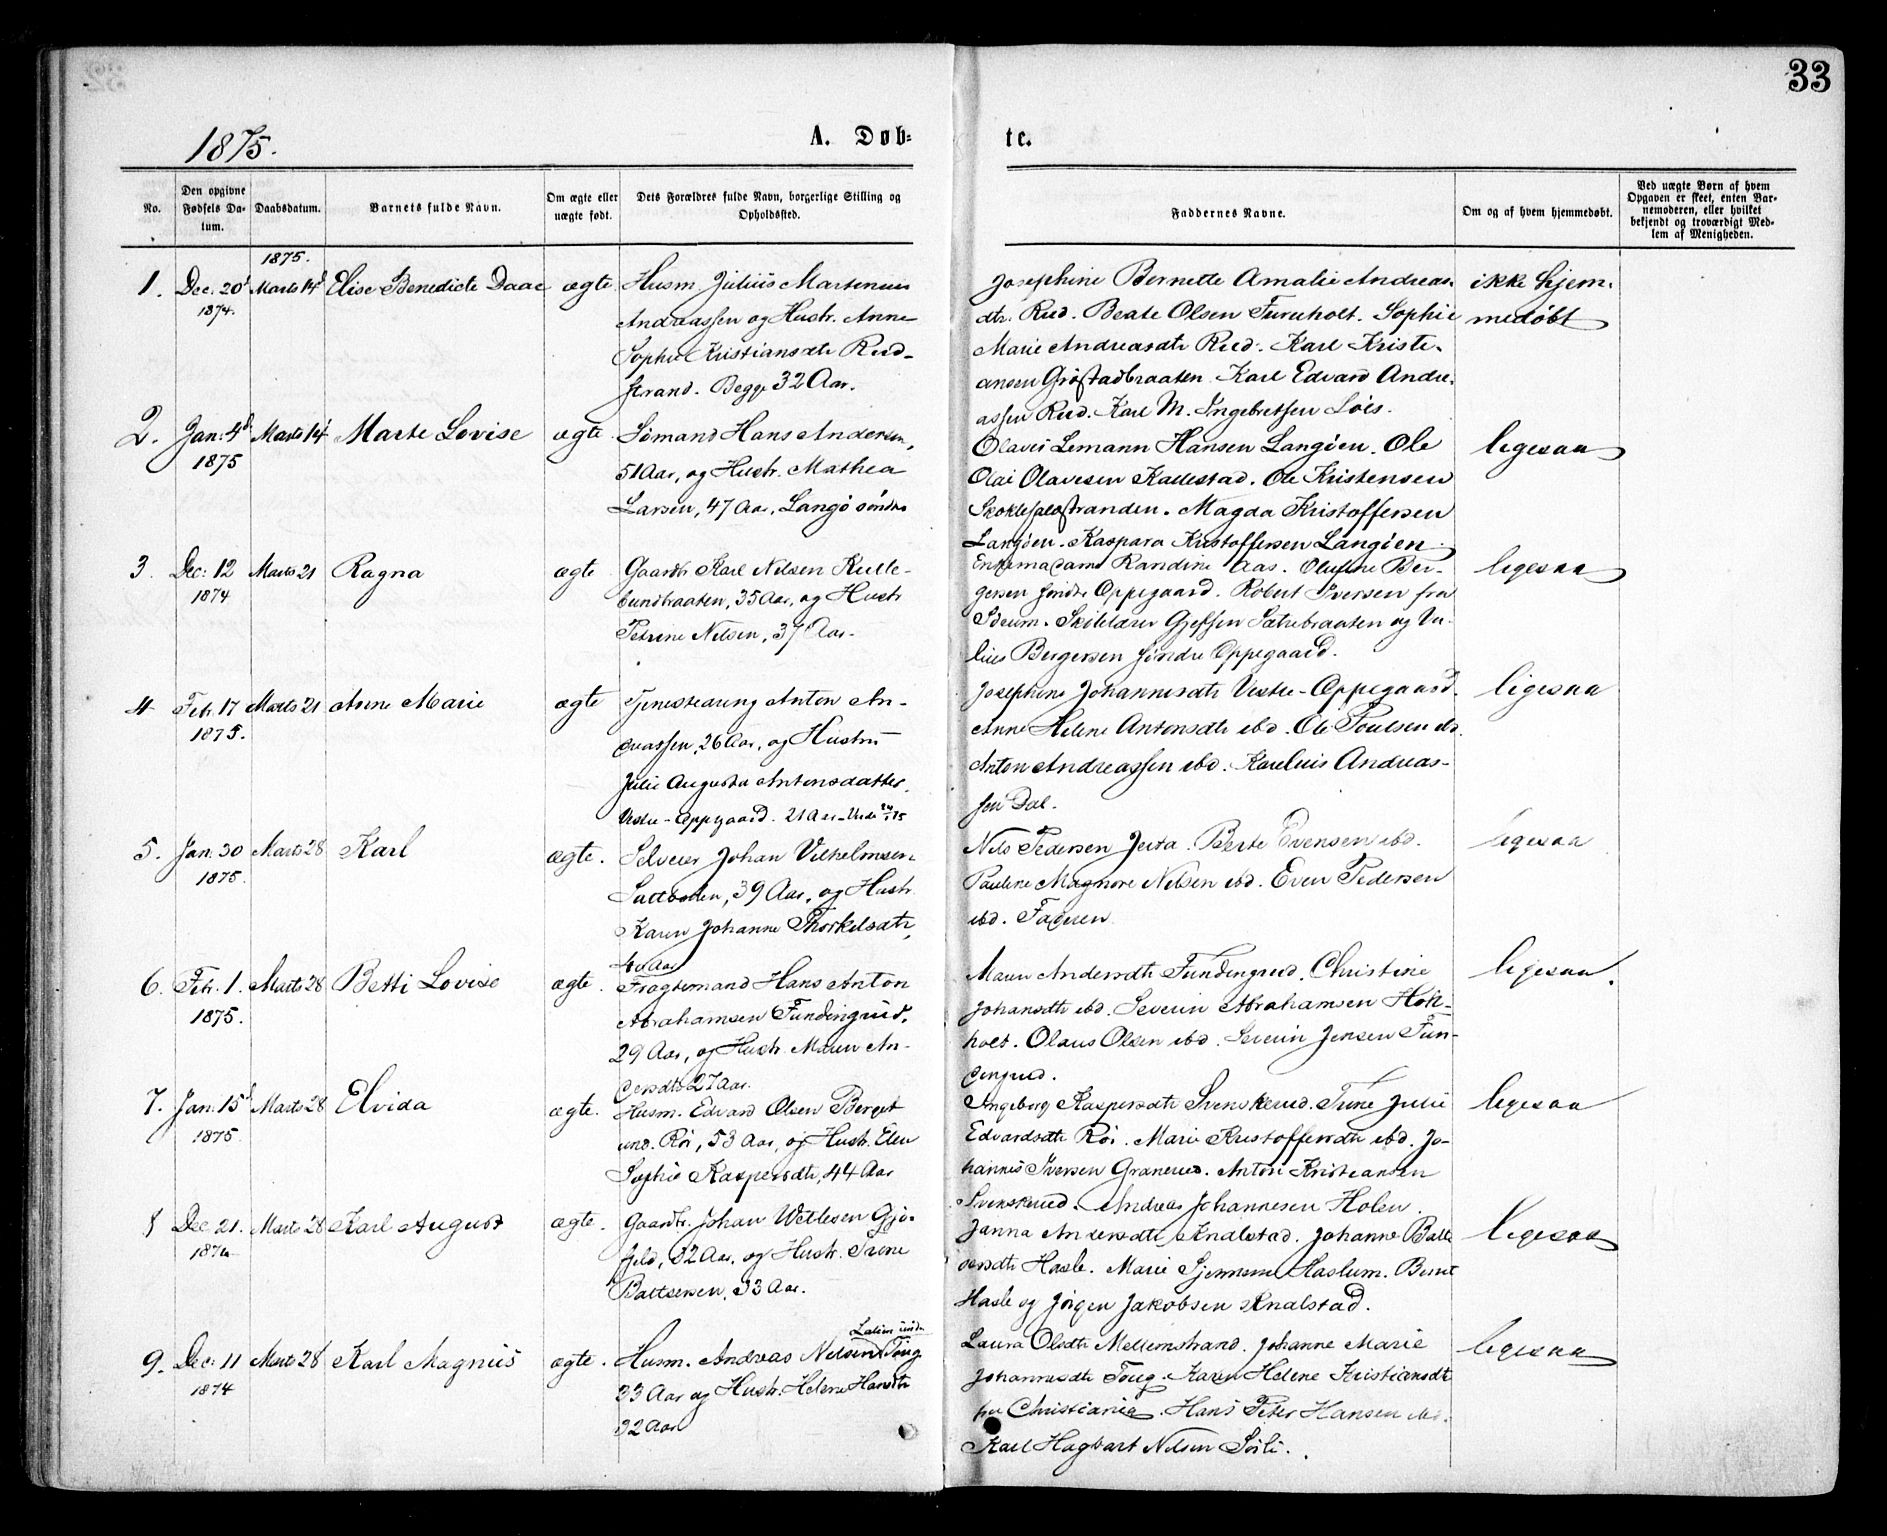 33
1875.
A. Døb- te.
No.
Den opgivne Fødsels Da- tum.
Daabsdatum.
Barnets fulde Navn.
Om ægte eller uægte født.
Dets Forældres fulde Navn, borgerlige Stilling og Opholdssted.
Faddernes Navne.
Om og af hvem hjemmedøbt.
Ved uægte Børn af hvem Opgaven er skeet, enten Bar- nemoderen, eller hvilket bekjendt og troværdigt Med- lem af Menigheden.
1875.
1. Dec. 20d 1874. Marts 14d Elise Benedicte Daae ægte
Husm. Julius Martinius
Andreassen og Hustr. Anne
Sophie Kristiansdtr Rud-
strand. Begge 32 Aar.
Josephine Bernette Amalie Andreas-
dtr. Rud. Beate Olsen Furuholt. Sophie
Marie Andreasdtr Rud. Karl Kristi-
ansen Grøstadbraaten. Karl Edvard Andre-
assen Rud. Karl M. Ingebretsen
ikke hjem-
medøbt
2. Jan. 4d 1875 Marts 14d Marte Lovise ægte.
Sømand Hans Andersen,
51 Aar, og Hustr. Mathea
Larsen, 47 Aar, Langø søndre
Olaves Lemann Hansen Langøen. Ole
Olai Olavesen Kallestad. Ole Kristensen
Skoklefaldstranden. Magda Kristoffersen
Langøen. Kaspara Kristoffersen Langøen.
ligesaa
3. Dec. 12 1874 Marts 21 Ragna ægte
Gaardbr Karl Nilsen Kulle-
bundbraaten, 35 Aar, og Hustr
Petrine Nilsen, 37 Aar.
Enkemadam Randine Aas. Olufine Ber-
gersen søndre Oppegaard. Robert Iversen fra
Skolelærer Gjessen Sætrebraaten og Ju-
lius Bergersen søndre Oppegaard.
ligesaa
4 Febr. 17 1875. Marts 21 Anne Marie ægte
Tjenestedreng Anton An-
dreassen, 26 Aar, og Hustru
Julie Augusta Antonsdatter,
Vestre-Oppegaard. 21 Aar
Josephine Johannesdtr Vestre-Oppegaard.
Anne Helene Antonsdtr ibd. Ole Poulsen ibd.
Anton Andreassen ibd. Karelius Andreas-
sen Dal.
ligesaa
5. Jan. 30 1875. Marts 28 Karl ægte.
Selveier Johan Vilhelmsen
Saltboden, 39 Aar, og Hustr.
Karen Johanne Thorkelsdtr,
40 Aar
Nils Pedersen Jerta. Berte Evensen ibd.
Pauline Magnore Nilsen ibd. Even Pedersen
ibd. Faderen.
ligesaa
6. Febr. 1. 1875. Marts 28 Betti Lovise ægte.
Fragtemand Hans Anton
Abrahamsen Fundingrud,
29 Aar, og Hustr. Maren An-
dersdtr 27 Aar.
Maren Andersdtr Fundingrud. Christine
Johansdtr ibd. Severin Abrahamsen Hok-
holt. Olaus Olsen ibd. Severin Jensen Fun-
dingrud.
ligesaa.
7. Jan. 15d 1875. Marts 28 Elvida ægte.
Husm. Edvard Olsen Berget
und. Røi, 53 Aar, og Hustr. Elen
Sophie Kaspersdtr, 44 Aar
Ingeborg Kaspersdtr Svenskerud. Trine Julie
Edvardsdtr Røi. Marie Kristoffersdtr ibd. Jo-
hannes Iversen Granerud. Anton Kristiansen
Svenskerud. Andreas Johannesen Holen.
ligesaa
8 Dec. 21. 1874 Marts 28 Karl August ægte.
Gaardbr. Johan Wetlesen Gjø-
fjeld, 32 Aar, og Hustr. Trine
Baltsersen, 33 Aar.
Janna Andersdtr Knalstad. Johanne Balt-
sersdtr Hasle. Marie Haslum. Bernt
Hasle og Jørgen Jakobsen Knalstad.
ligesaa
9. Dec. 11 1874 Marts 28 Karl Magnus ægte.
Husm. Andreas Nilsen under Toug
33 Aar og Hustr. Helene Hansdtr
32 Aar
Laura Olsdtr Mellemstrand. Johanne Marie
Johannesdtr Toug. Karen Helene Kristiansdtr
fra Christiania. Hans Peter Hansen ibd.
Karl Hagbart Nilsen Solli.
ligesaa